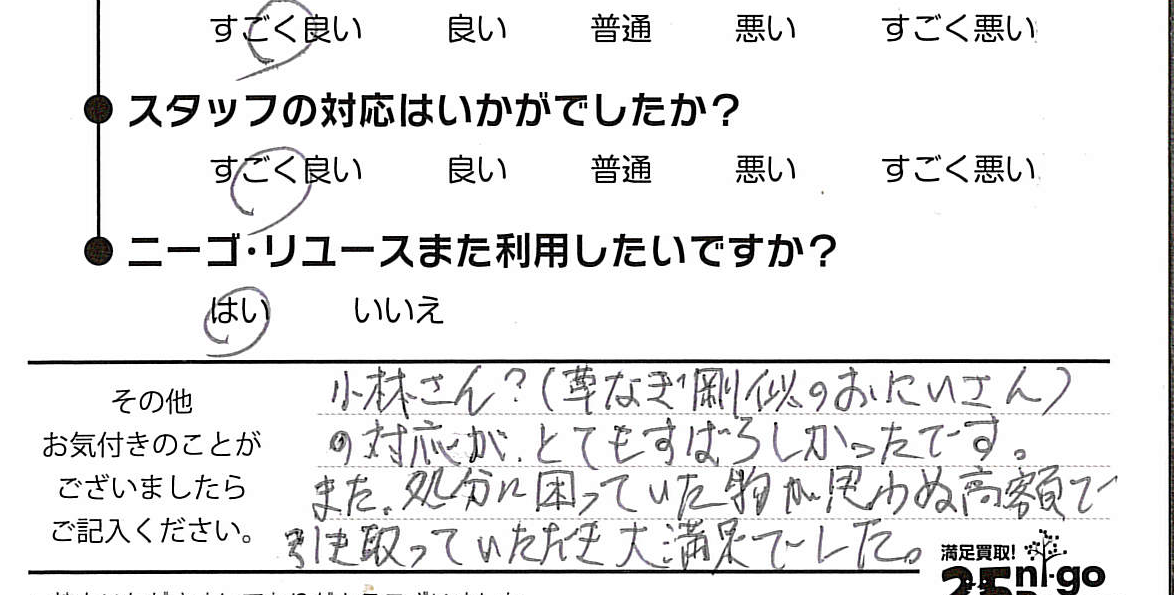 すごく良い 良い 普通 悪い すごく悪い
スタッフの対応はいかがでしたか？
すごく良い 良い 普通 悪い すごく悪い
ニーゴ・リユースまた利用したいですか？
はい いいえ
その他
お気付きのことが
ございましたら
ご記入ください。
小林さん？（草なぎ剛似のおにいさん）
の対応が、とてもすばらしかったです。
また、処分に困っていた物が思わぬ高額で
引き取っていただき大満足でした。
満足買取！
25 ni-go